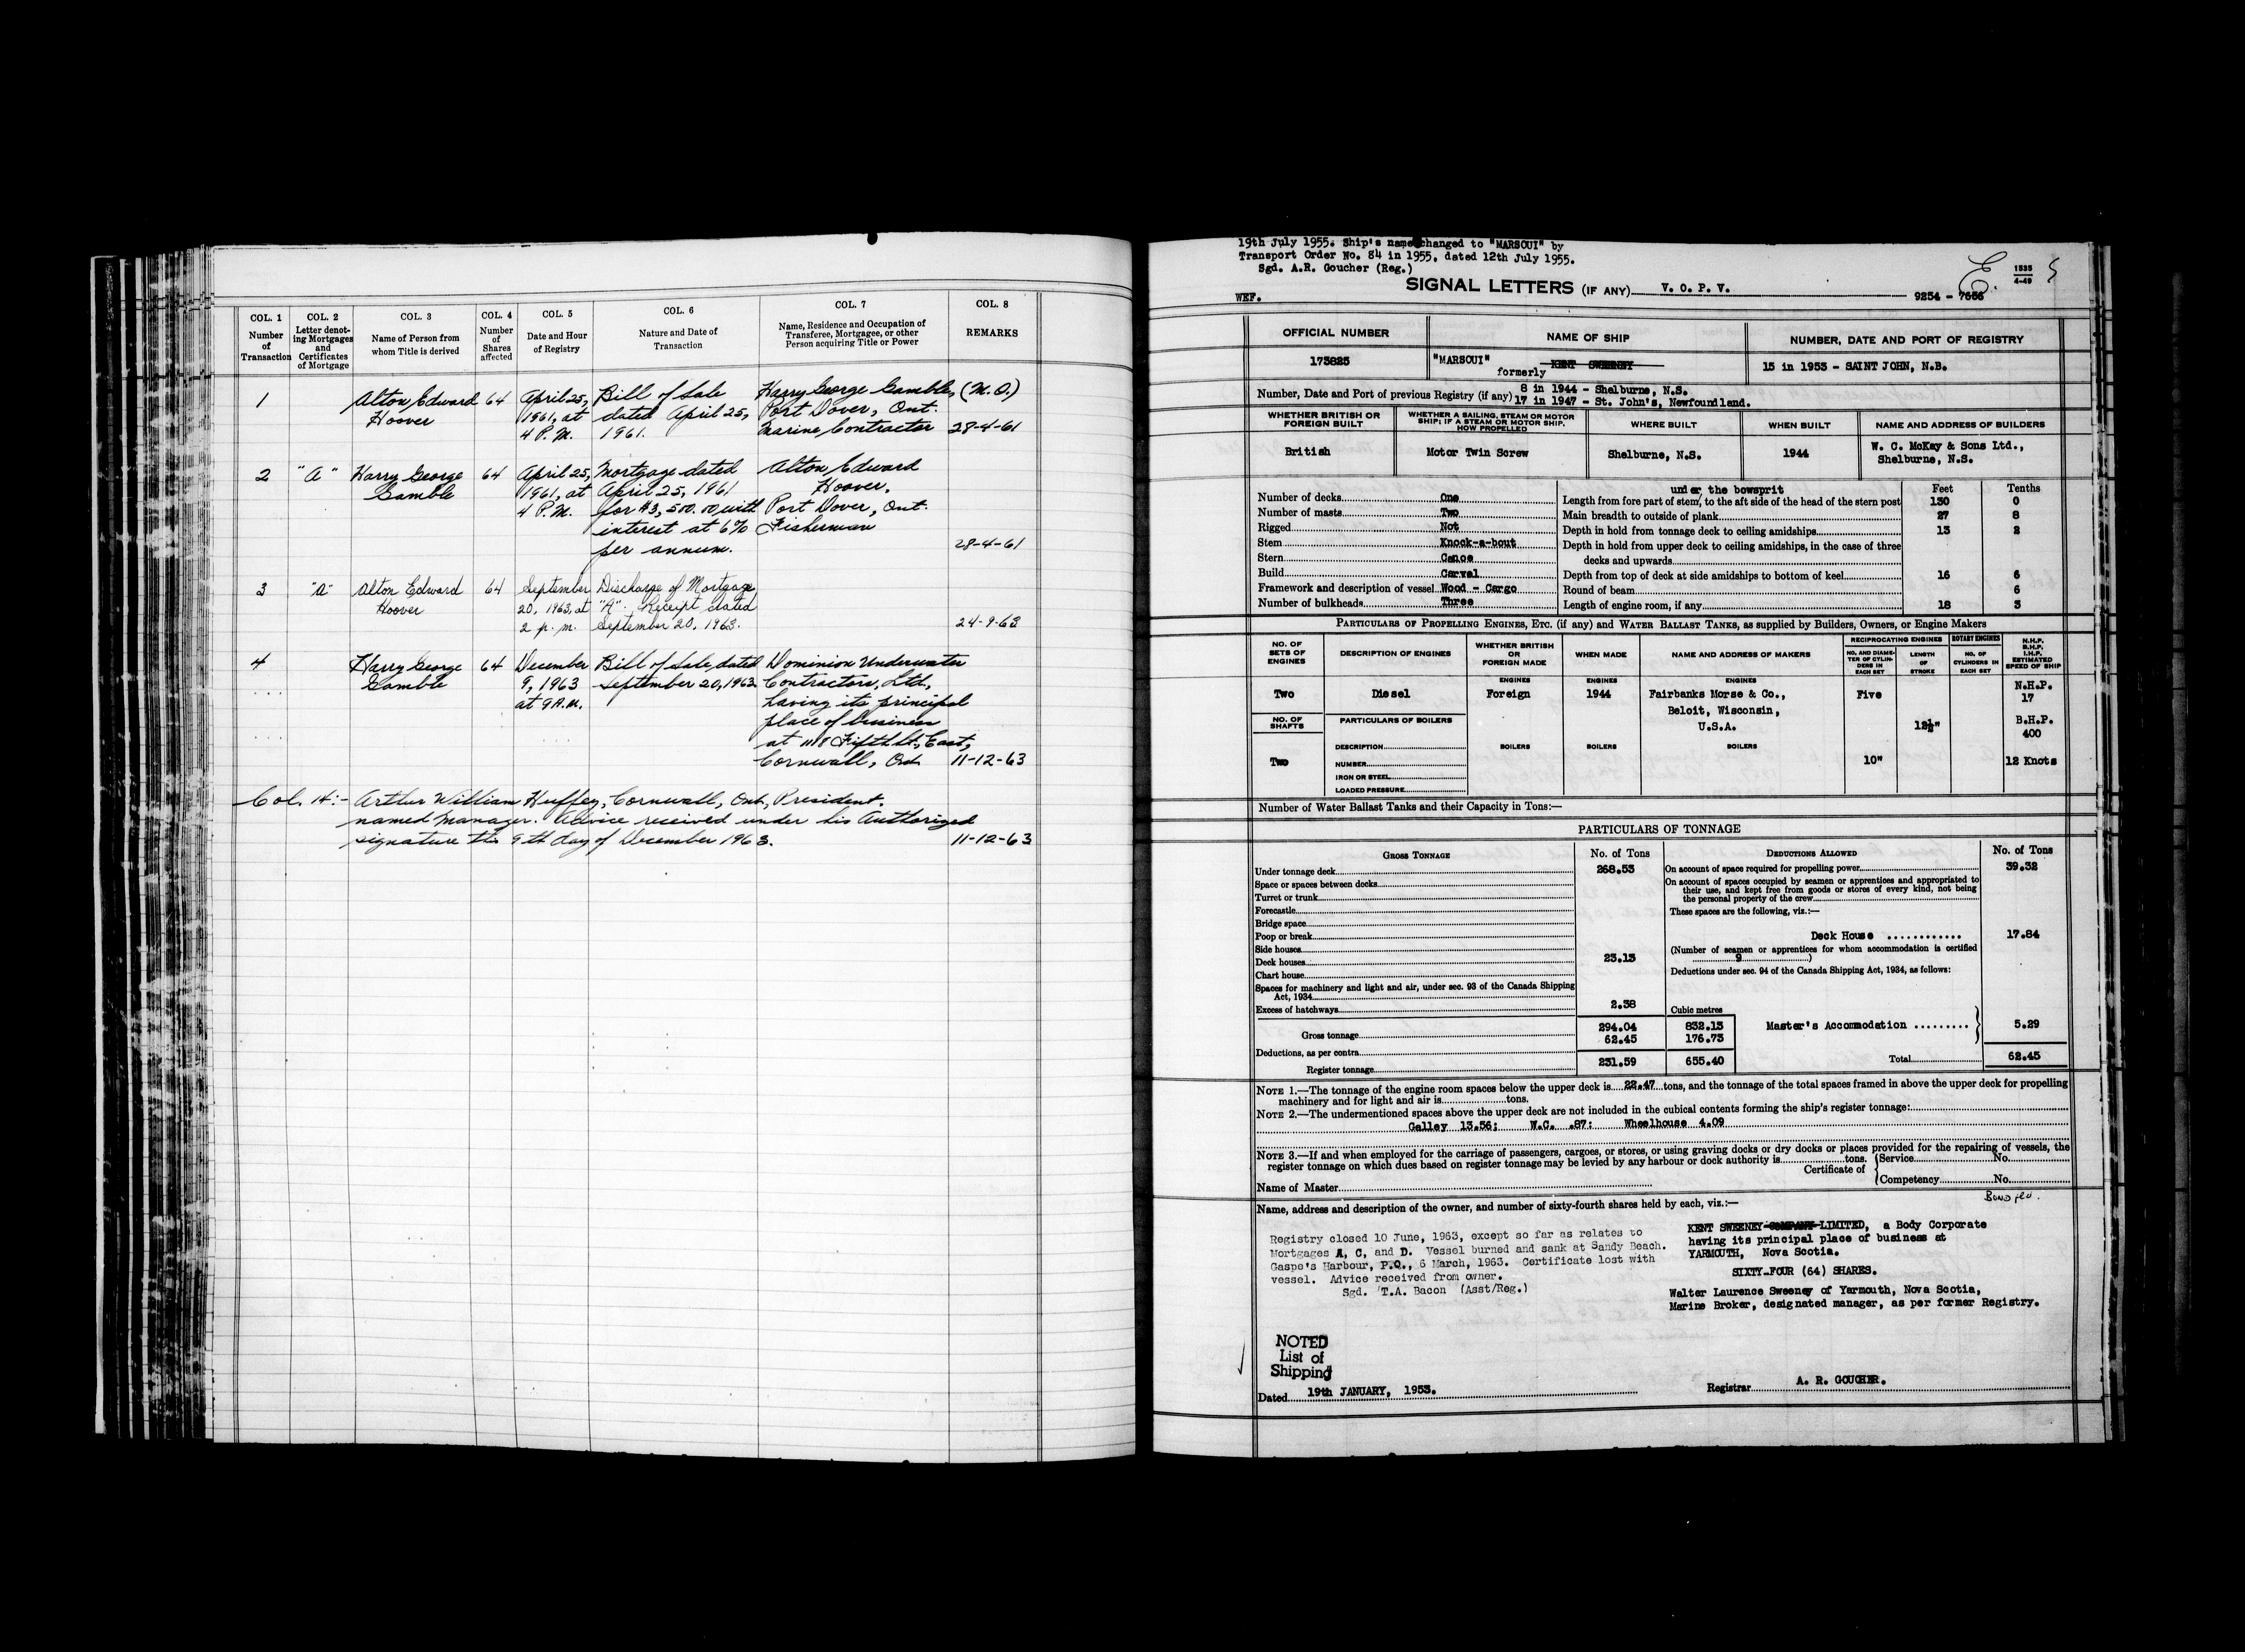 COL. 1 COL. 2 COL. 3 COL. 4 COL. 5 COL. 6 COL. 7 COL. 8
Number of Transaction
Letter denoting Mortgages and Certificates of Mortgage
Name of Person from whom Title is derived
Number of Shares affected
Date and Hour of Registry
Nature and Date of Transaction
Name, Residence and Occupation of Transferee, Mortgagee, or other Person acquiring Title or Power
REMARKS
1 Alton Edward 64 April 25, Bill of Sale Harry George Gamble, (M.O.)
Hoover 1961, at dated April 25, Port Dover, Ont.
4 P.M. 1961. Marine Contractor 28-4-61
2 "A" Harry George 64 April 25, Mortgage dated Alton Edward
Gamble 1961, at April 25, 1961 Hoover,
4 P.M. for $3,500.00 with Port Dover, Ont.
interest at 6% Fisherman
per annum. 28-4-61
3 "A" Alton Edward 64 September Discharge of Mortgage
Hoover 20, 1963, at "A". Receipt dated
2 p.m. September 20, 1963. 24-9-63
4 Harry George 64 December Bill of Sale, dated Dominion Underwater
Gamble 9, 1963 September 20, 1963 Contractors, Ltd.,
at 9 A.M. having its principal
place of business
at 1118 Fifth St., East,
Cornwall, Ont. 11-12-63
Col. 14:- Arthur William Huffey, Cornwall, Ont., President.
named Manager. Advice received under his Authorized
signature this 9th day of December 1963. 11-12-63
19th July 1955. Ship's name changed to "MARSOUI" by
Transport Order No. 84 in 1955, dated 12th July 1955.
Sgd. A.R. Goucher (Reg.)
E. 1535
4-49
SIGNAL LETTERS (IF ANY) V. O. P. V.
WEF. 9254 - 7656
OFFICIAL NUMBER NAME OF SHIP NUMBER, DATE AND PORT OF REGISTRY
173825 "MARSOUI" formerly KENT SWEENEY 15 in 1953 - SAINT JOHN, N.B.
Number, Date and Port of previous Registry (if any) 8 in 1944 - Shelburne, N.S.
17 in 1947 - St. John's, Newfoundland.
WHETHER BRITISH OR FOREIGN BUILT
WHETHER A SAILING, STEAM OR MOTOR SHIP; IF A STEAM OR MOTOR SHIP, HOW PROPELLED
WHERE BUILT WHEN BUILT NAME AND ADDRESS OF BUILDERS
British Motor Twin Screw Shelburne, N.S. 1944 W. C. McKay & Sons Ltd.,
Shelburne, N.S.
under the bowsprit Feet Tenths
Number of decks One Length from fore part of stem, to the aft side of the head of the stern post 130 0
Number of masts Two Main breadth to outside of plank 27 8
Rigged Not Depth in hold from tonnage deck to ceiling amidships 13 2
Stem Knock-a-bout Depth in hold from upper deck to ceiling amidships, in the case of three
Stern Canoe decks and upwards
Build Carvel Depth from top of deck at side amidships to bottom of keel 16 6
Framework and description of vessel Wood - Cargo Round of beam 6
Number of bulkheads Three Length of engine room, if any 18 3
PARTICULARS OF PROPELLING ENGINES, ETC. (if any) and WATER BALLAST TANKS, as supplied by Builders, Owners, or Engine Makers
NO. OF SETS OF ENGINES
DESCRIPTION OF ENGINES
WHETHER BRITISH OR FOREIGN MADE
WHEN MADE
NAME AND ADDRESS OF MAKERS
RECIPROCATING ENGINES ROTARY ENGINES
NO. AND DIAMETER OF CYLINDERS IN EACH SET
LENGTH OF STROKE
NO. OF CYLINDERS IN EACH SET
N.H.P. B.H.P. I.H.P. ESTIMATED SPEED OF SHIP
ENGINES ENGINES ENGINES
Two Diesel Foreign 1944 Fairbanks Morse & Co., Five N.H.P.
17
Beloit, Wisconsin,
U.S.A. 12½" B.H.P.
400
NO. OF SHAFTS PARTICULARS OF BOILERS
BOILERS BOILERS BOILERS
DESCRIPTION
Two NUMBER 10" 12 Knots
IRON OR STEEL
LOADED PRESSURE
Number of Water Ballast Tanks and their Capacity in Tons:—
PARTICULARS OF TONNAGE
GROSS TONNAGE No. of Tons DEDUCTIONS ALLOWED No. of Tons
Under tonnage deck 268.53 On account of space required for propelling power 39.32
Space or spaces between decks On account of spaces occupied by seamen or apprentices and appropriated to
their use, and kept free from goods or stores of every kind, not being
the personal property of the crew
Turret or trunk
Forecastle These spaces are the following, viz.:—
Bridge space
Poop or break Deck House 17.84
Side houses (Number of seamen or apprentices for whom accommodation is certified
9)
Deck houses 23.13
Chart house Deductions under sec. 94 of the Canada Shipping Act, 1934, as follows:
Spaces for machinery and light and air, under sec. 93 of the Canada Shipping
Act, 1934
Excess of hatchways 2.38 Cubic metres
Gross tonnage 294.04 832.13 Master's Accommodation 5.29
Deductions, as per contra 62.45 176.73
Register tonnage 231.59 655.40 Total 62.45
NOTE 1.—The tonnage of the engine room spaces below the upper deck is 22.47 tons, and the tonnage of the total spaces framed in above the upper deck for propelling
machinery and for light and air is tons.
NOTE 2.—The undermentioned spaces above the upper deck are not included in the cubical contents forming the ship's register tonnage:
Galley 13.56; W.C. .87; Wheelhouse 4.09
NOTE 3.—If and when employed for the carriage of passengers, cargoes, or stores, or using graving docks or dry docks or places provided for the repairing of vessels, the
register tonnage on which dues based on register tonnage may be levied by any harbour or dock authority is tons.
Certificate of Service No.
Competency No.
Name of Master
Name, address and description of the owner, and number of sixty-fourth shares held by each, viz.:—
KENT SWEENEY COMPANY LIMITED, a Body Corporate
having its principal place of business at
YARMOUTH, Nova Scotia.
SIXTY-FOUR (64) SHARES.
Walter Laurence Sweeney of Yarmouth, Nova Scotia,
Marine Broker, designated manager, as per former Registry.
Registry closed 10 June, 1963, except so far as relates to
Mortgages A, C, and D. Vessel burned and sank at Sandy Beach.
Gaspe's Harbour, P.Q., 6 March, 1963. Certificate lost with
vessel. Advice received from owner.
Sgd. T.A. Bacon (Asst/Reg.)
NOTED
List of
Shipping
Dated 19th JANUARY, 1953. Registrar A. R. GOUCHER.